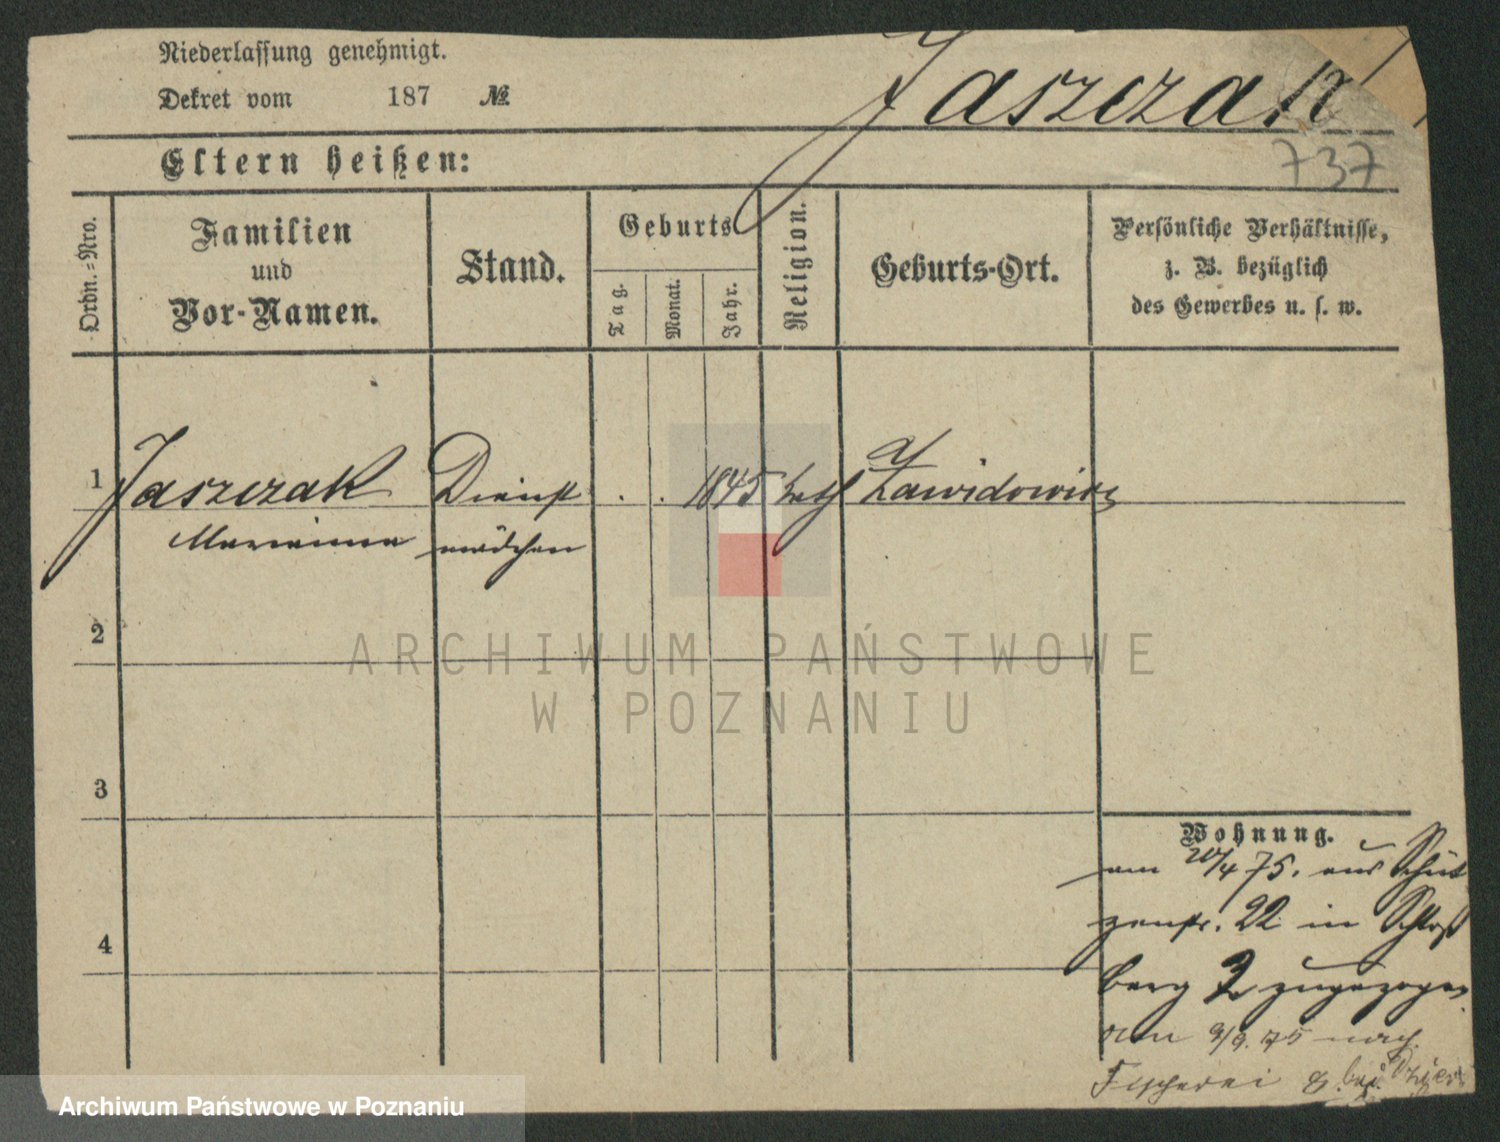 Niederlassung genehmigt.
Dekret vom 187 №
Jaszczak
737
Eltern heißen:
Ordn.-Nro.
Familien
und
Vor-Namen.
Stand.
Geburts
Tag.
Monat.
Jahr.
Religion.
Geburts-Ort.
Persönliche Verhältnisse,
z. B. bezüglich
des Gewerbes u. s. w.
1 Jaszczak Dienst . . 1845 kath Zawidowice
Marianna mädchen
2
3
4
Wohnung.
am 20/4 75. aus Schüt
zenstr. 22 in Schloß
berg 2 zugezogen
am 9/9. 75 nach
Fischerei 8 bei
ARCHIWUM PAŃSTWOWE
W POZNANIU
Archiwum Państwowe w Poznaniu